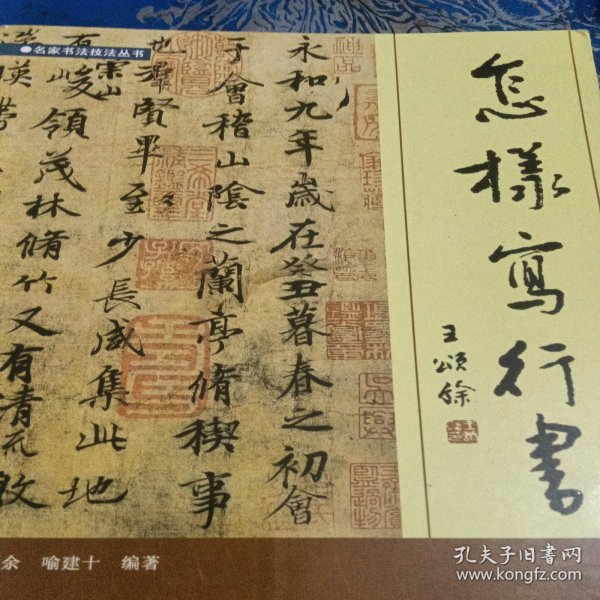 ●名家书法技法丛书
怎樣寫行書
王頌餘
永和九年歲在癸丑暮春之初會
于會稽山陰之蘭亭脩稧事
也羣賢畢至少長咸集此地
有崇山峻領茂林脩竹又有清流激
余 喻建十 编著
孔夫子旧书网
www.kongfz.com